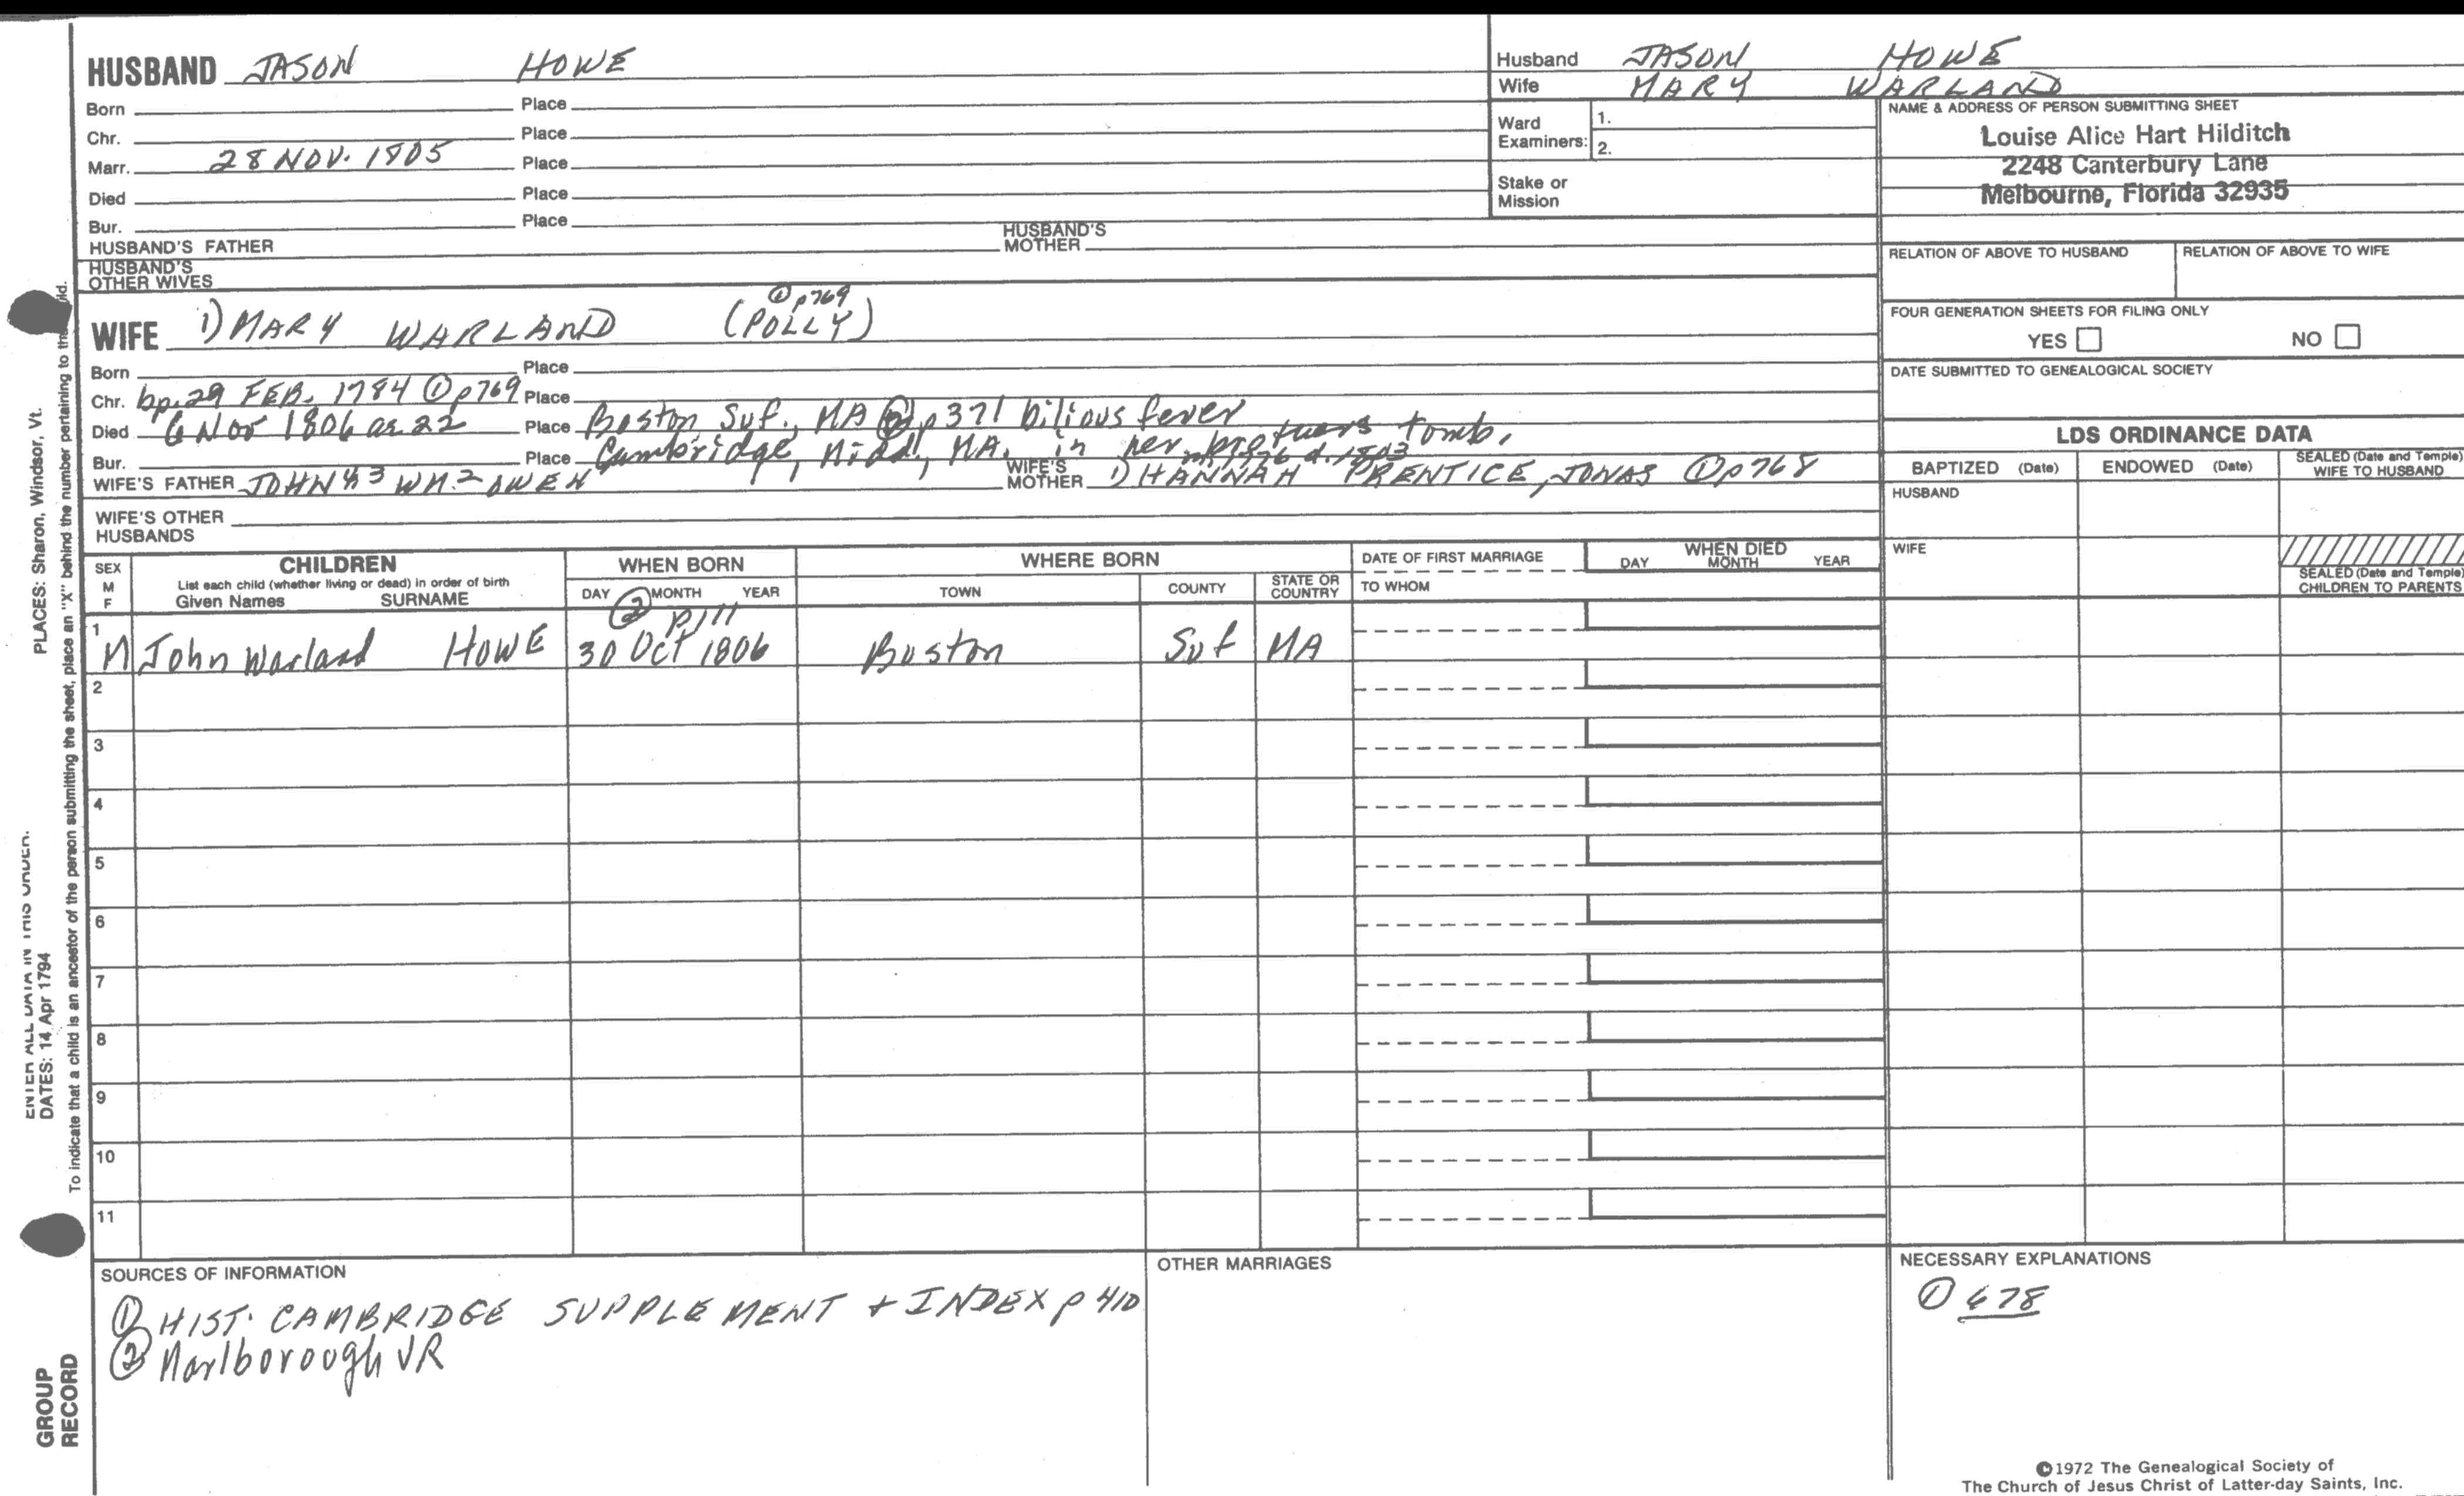 HUSBAND JASON HOWE
Born Place
Chr. Place
Marr. 28 NOV. 1805 Place
Died Place
Bur. Place
HUSBAND'S FATHER HUSBAND'S MOTHER
HUSBAND'S OTHER WIVES
Husband JASON HOWE
Wife MARY WARLAND
Ward Examiners: 1.
2.
Stake or Mission
NAME & ADDRESS OF PERSON SUBMITTING SHEET
Louise Alice Hart Hilditch
2248 Canterbury Lane
Melbourne, Florida 32935
RELATION OF ABOVE TO HUSBAND RELATION OF ABOVE TO WIFE
FOUR GENERATION SHEETS FOR FILING ONLY
YES NO
DATE SUBMITTED TO GENEALOGICAL SOCIETY
① p769
WIFE 1) MARY WARLAND (POLLY)
Born Place
Chr. bp. 29 FEB. 1784 ① p769 Place
Died 6 Nov 1806 ae 22 Place Boston Suf., MA ② p371 bilious fever
Bur. Place Cambridge, Midd, MA. in her brothers tomb.
d. 1803
WIFE'S FATHER JOHN 3 WM. 2 OWEN WIFE'S MOTHER 1) HANNAH PRENTICE, JONAS ① p768
WIFE'S OTHER HUSBANDS
LDS ORDINANCE DATA
BAPTIZED (Date) ENDOWED (Date) SEALED (Date and Temple) WIFE TO HUSBAND
HUSBAND
WIFE
SEALED (Date and Temple) CHILDREN TO PARENTS
SEX M F CHILDREN
List each child (whether living or dead) in order of birth
Given Names SURNAME
WHEN BORN
DAY MONTH YEAR
WHERE BORN
TOWN COUNTY STATE OR COUNTRY
DATE OF FIRST MARRIAGE
TO WHOM
WHEN DIED
DAY MONTH YEAR
② p111
1 M John Warland HOWE 30 Oct 1806 Boston Suf MA
2
3
4
5
6
7
8
9
10
11
SOURCES OF INFORMATION
① HIST. CAMBRIDGE SUPPLEMENT + INDEX p 410
② Marlborough VR
OTHER MARRIAGES
NECESSARY EXPLANATIONS
① 678
©1972 The Genealogical Society of
The Church of Jesus Christ of Latter-day Saints, Inc.
PLACES: Sharon, Windsor, Vt.
ENTER ALL DATA IN THIS ORDER.
DATES: 14 Apr 1794
To indicate that a child is an ancestor of the person submitting the sheet, place an "X" behind the number pertaining to
GROUP
RECORD